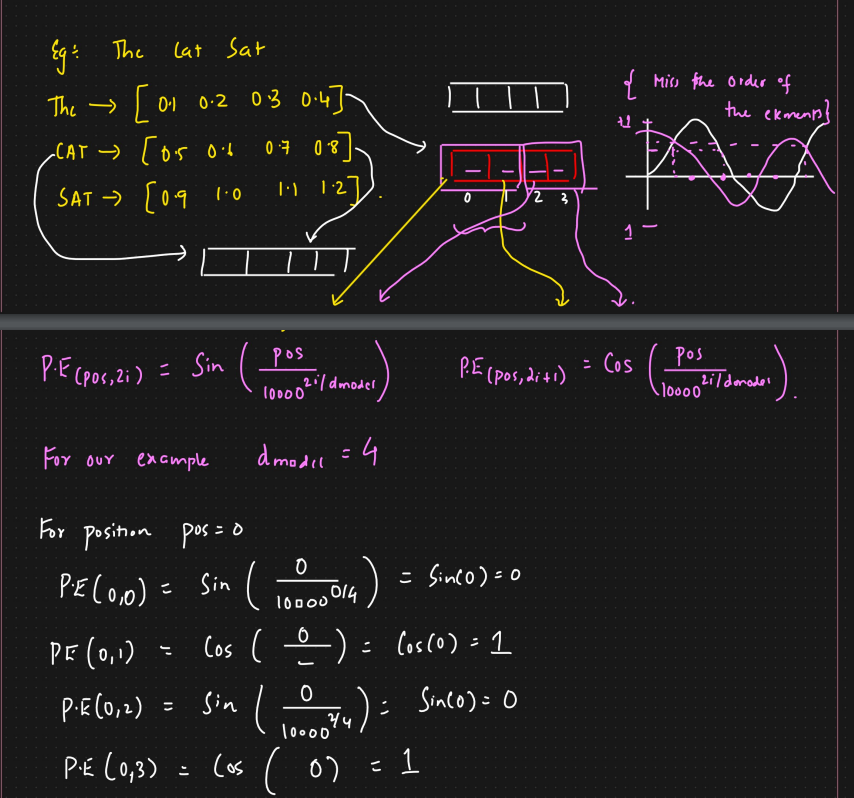 Eg: The Cat Sat
The → [0.1 0.2 0.3 0.4]
CAT → [0.5 0.6 0.7 0.8]
SAT → [0.9 1.0 1.1 1.2].
{ Miss the order of
the elements}
+1
0 1 2 3
1 -
P.E(pos,2i) = Sin (pos / 10000^2i/dmodel)
P.E(pos,2i+1) = Cos (pos / 10000^2i/dmodel).
For our example dmodel = 4
For position pos = 0
P.E(0,0) = Sin (0 / 10000^0/4) = Sin(0) = 0
PE(0,1) = Cos (0 / -) = Cos(0) = 1
P.E(0,2) = Sin (0 / 10000^2/4) = Sin(0) = 0
P.E(0,3) = Cos (0) = 1